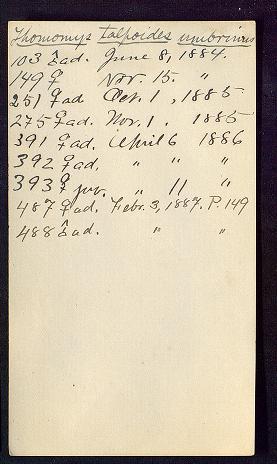 Thomomys talpoides umbrinus
103 ♀ad. June 8, 1884.
149 ♀ Nov. 15. "
251 ♀ad Oct. 1, 1885
275 ♀ad. Nov. 1. 1885
391 ♀ad. April 6 1886
392 ♀ad. " " "
393 ♀juv. " 11 "
487 ♀ad. Febr. 3, 1887. P. 149
488 ad. " "